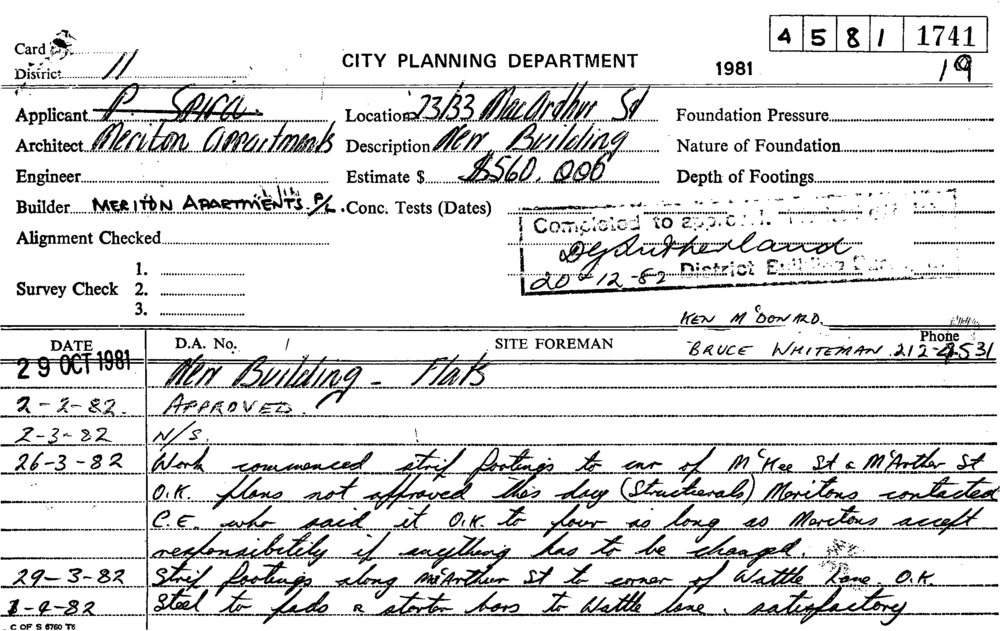 4 5 8 1 1741
Card
CITY PLANNING DEPARTMENT
District 11 1981 19
Applicant P. Spira. Location 23/33 MacArdhur St Foundation Pressure
Architect Meriton Appartments Description New Building Nature of Foundation
Engineer Estimate $ $560,000 Depth of Footings
Builder MERITON APARTMENTS. P/L. Conc. Tests (Dates)
Completed to
Alignment Checked
DGSutherland
1.
20-12-82 District Building
Survey Check 2.
3.
KEN McDONARD.
DATE D.A. No. / SITE FOREMAN Phone
BRUCE WHITEMAN 212-2531
29 OCT 1981 New Building - Flats
2-2-82. APPROVED.
2-3-82 N/S.
26-3-82 Work commenced strip footings to cnr of McKee St & McArther St
O.K. plans not approved this day (Structuerals) Meritons contacted
C.E. who said it O.K. to pour as long as Meritons accept
responsibitily if anything has to be changed.
29-3-82 Strip footings along McArthur St to corner of Wattle Lane. O.K.
1-4-82 Steel to pads & starter bars to Wattle lane. satisfactory
C OF S 6760 T6